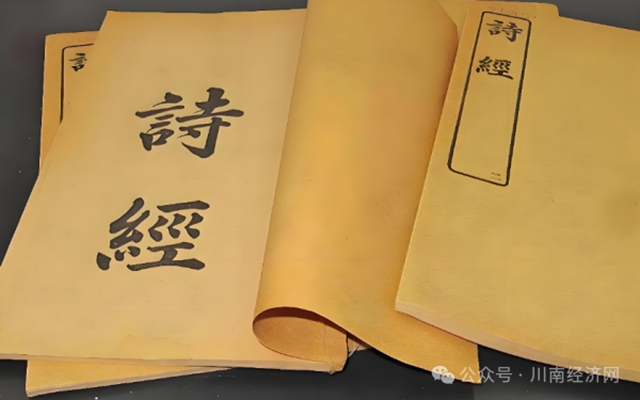 詩
經
詩
經
二
公众号·川南经济网